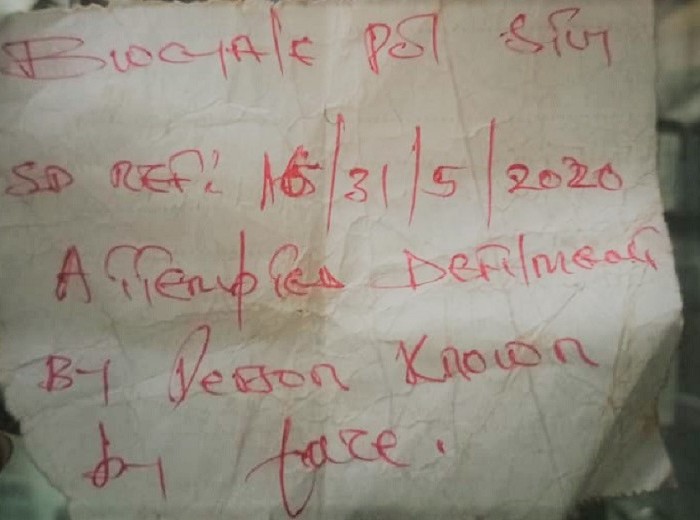 SD REF: 16/31/5/2020
Attempted Defilment
By Person Known
by face.